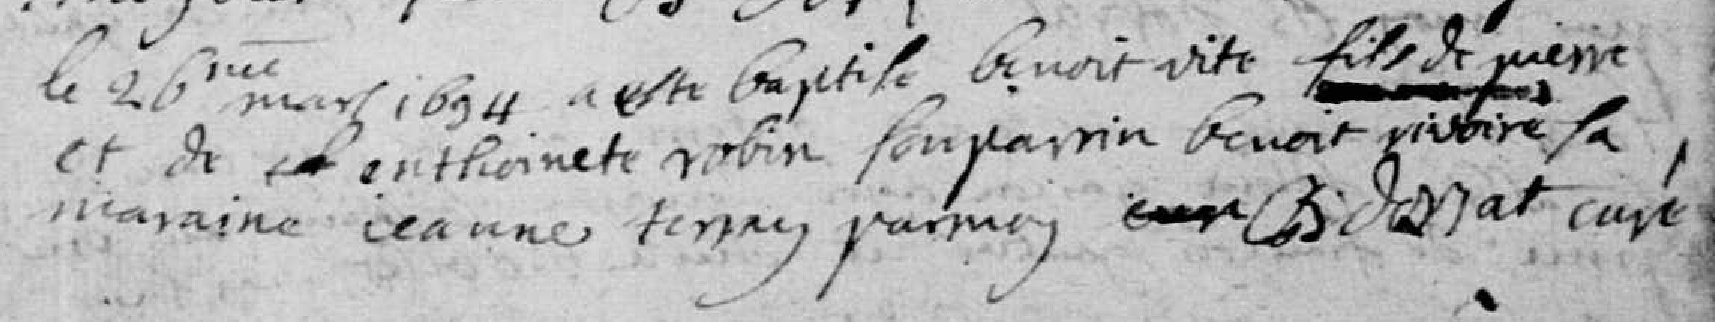 le 26me mars 1694 a este baptise benoit vite fils de pierre
et de enthoinete robin son parrin benoit rivoire sa
maraine jeanne terray par moy curé